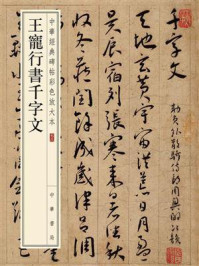 千字文
勅員外散騎侍郎周興嗣次韻
天地玄黃宇宙洪荒日月盈
昃辰宿列張寒來暑往秋收
冬藏閏餘成歲律呂調
中華經典碑帖彩色放大本
王寵行書千字文
中華書局